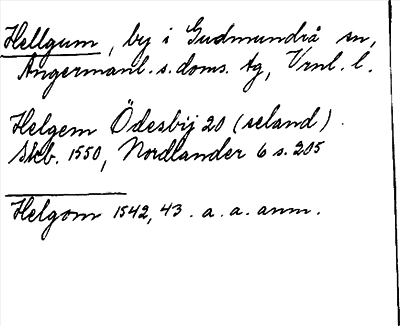 Hellgum, by i Gudmundrå sn,
Ångermanl. s. doms. tg, Vrnl. l.
Helgem Ödesbij 20 (seland).
Skb. 1550, Nordlander 6 s. 205
Helgom 1542, 43. a. a. anm.